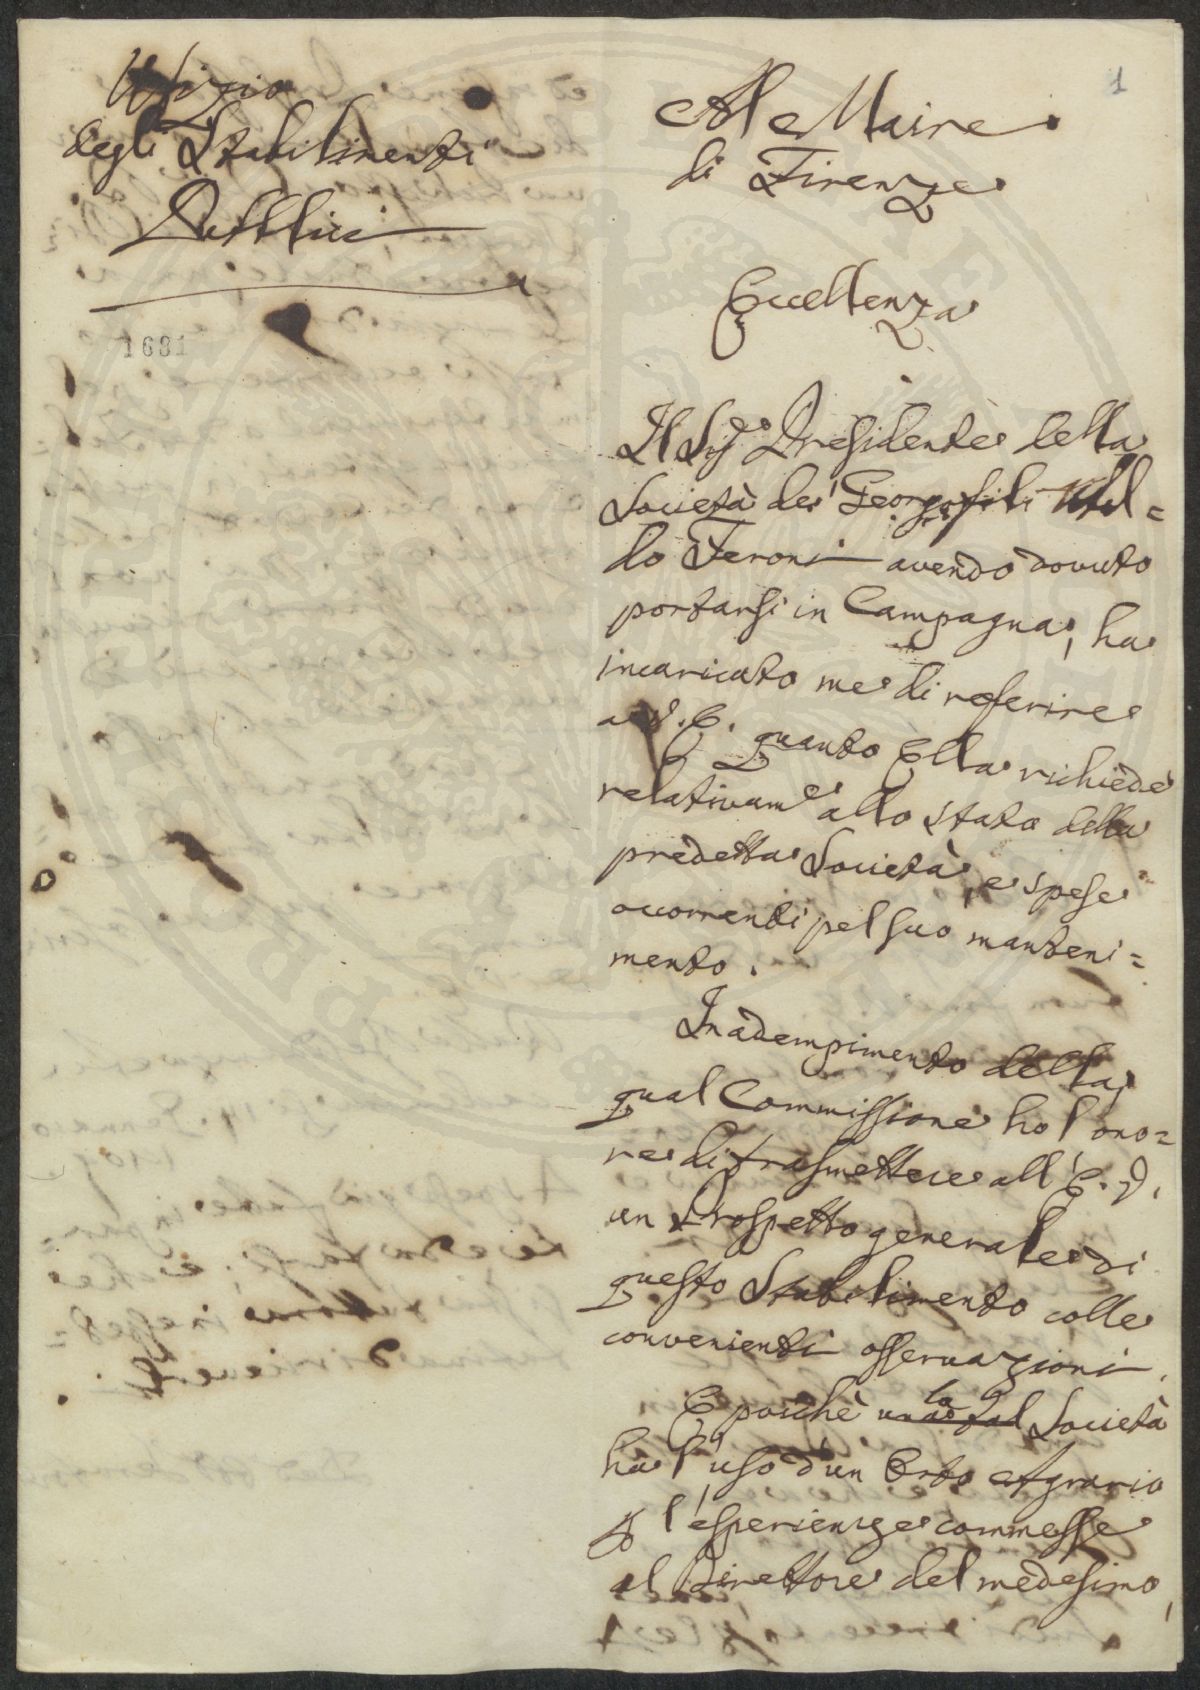 Ufizio
degli Stabilimenti
Pubblici
1681
1
Al Maire
di Firenze
Eccellenza
Il Sigre Presidente della
Società dei Georgofili Ubal=
do Feroni avendo dovuto
portarsi in Campagna, ha
incaricato me di referire
a V. E. quanto Ella richiede
relativame allo stato della
predetta Società, e spese
occorrenti pel suo manteni=
mento.
In adempimento della
qual Commissione ho l'ono=
re di trasmettere all' E. V.
un Prospetto generale di
questo Stabilimento colle
convenienti osservazioni.
E poichè la Società
ha l'uso d'un Orto Agrario
p l'esperienze commesse
al Direttore del medesimo,